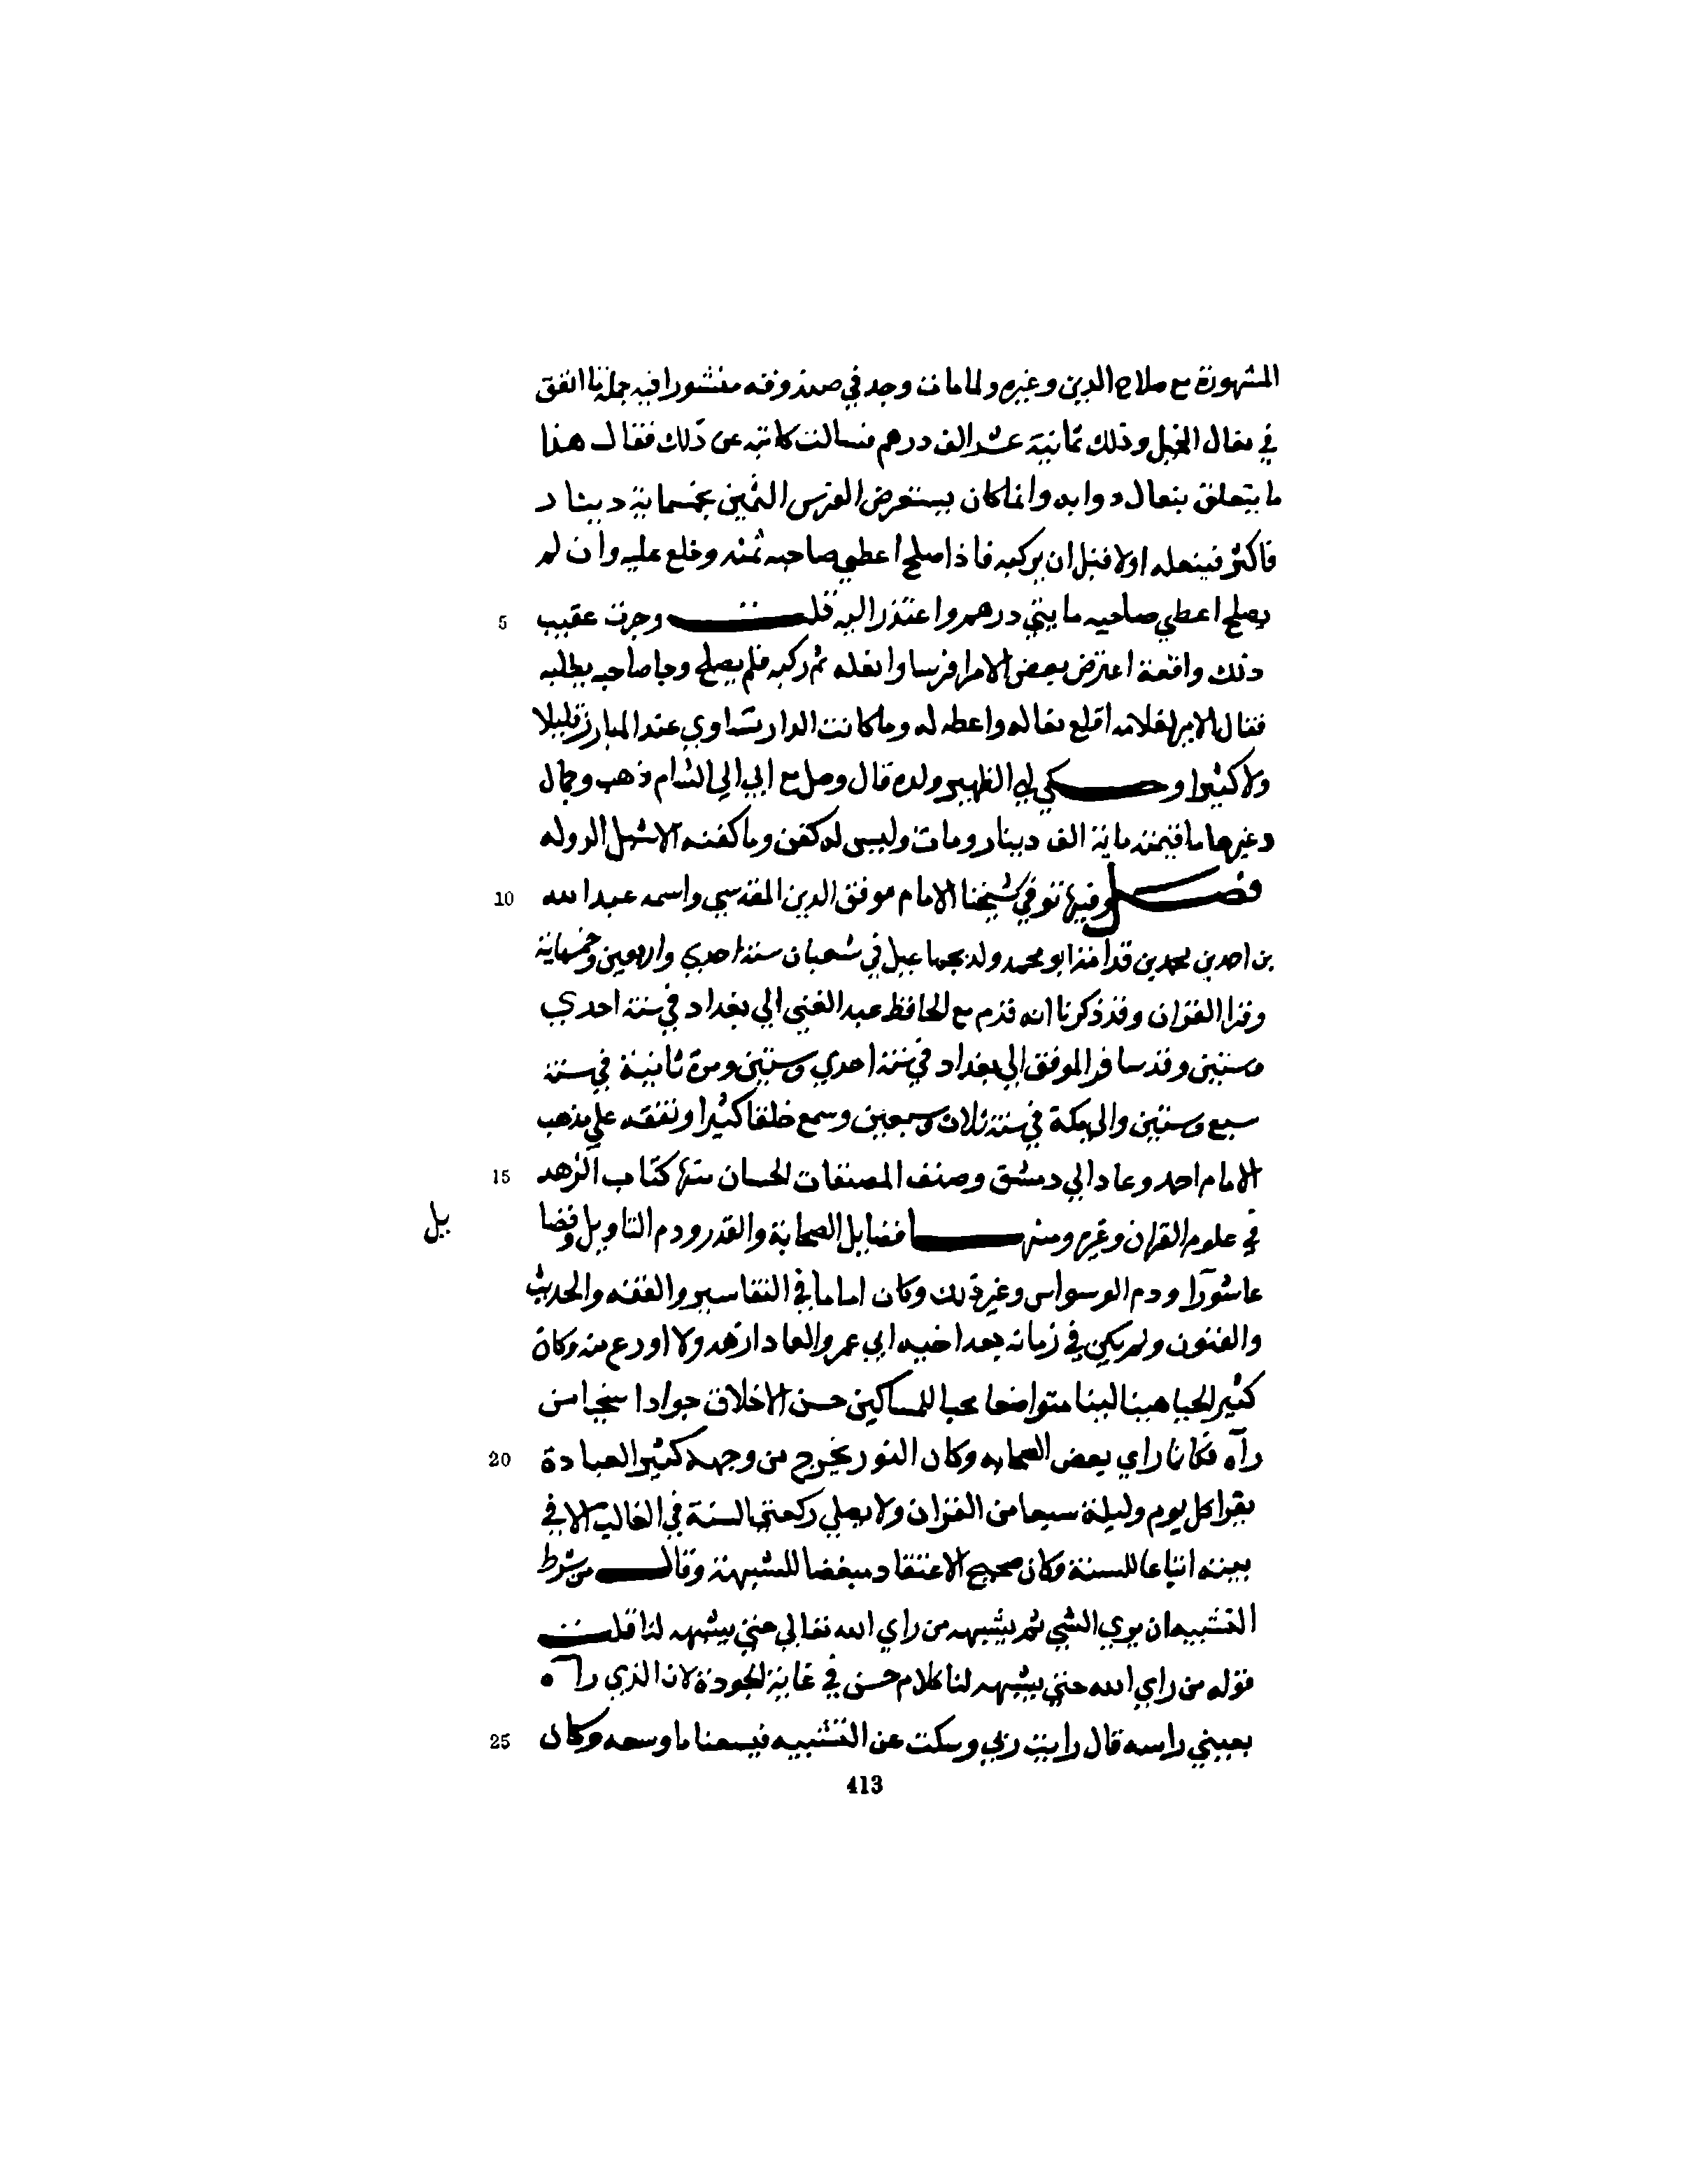 المشهورة مع صلاح الدين وغيره ولما مات وجد في صندوقه منشورا فيه جملة ما اتفق
في نعال الخيل وذلك ثمانية عشر الف درهم فسالت كاتبه عن ذلك فقال هذا
ما يتعلق بنعال دوابه وانما كان يستعرض الفرس الثمين بخمسماية دينار
فاكثر فينعله اولا قبل ان يركبه فاذا صلح اعطي صاحبه ثمنه وخلع عليه وان لم
يصلح اعطي صاحبه مايتي درهم واعتذر اليه قلت وجرت عقيب 5
ذلك واقعة اعترض بعض الامرا فرسا وانعله ثم ركبه فلم يصلح وجا صاحبه يطلبه
فقال الامير لغلامه اقلع نعاله واعطه له وما كانت الدار تساوي عند المبارز قليلا
ولا كثيرا وحكي لي الظهير ولده قال وصل مع ابي الي الشام ذهب وجمال
وغيرها ما قيمته ماية الف دينار ومات وليس له كفن وما كفنه الا شبل الدوله
فصل وفيها توفي شيخنا الامام موفق الدين المقدسي واسمه عبد الله 10
بن احمد بن محمد بن قدامة ابو محمد ولد بجماعيل في شعبان سنة احدي واربعين وخمسماية
وقرا القران وقد ذكرنا انه قدم مع الحافظ عبد الغني الي بغداد في سنة احدي
وستين وقد سافر الموفق الي بغداد في سنة احدي وستين ومرة ثانية في سنة
سبع وستين والي مكة في سنة ثلاث وسبعين وسمع خلقا كثيرا وتفقه علي مذهب
الامام احمد وعاد الي دمشق وصنف المصنفات الحسان منها كتاب الزهد 15
في علوم القران وغيره ومنها فضايل الصحابة والقدر وذم التاويل وفضا يل
عاشورآ وذم الوسواس وغير ذلك وكان اماما في التفاسير والفقه والحديث
والفنون ولم يكن في زمانه بعد اخيه ابي عمر والعماد ازهد ولا اورع منه وكان
كثير الحيا هينا لينا متواضعا محبا للمساكين حسن الاخلاق جوادا سخيا من
رآه فكانما راي بعض الصحابه وكان النور يخرج من وجهه كثير العبادة 20
يقرا كل يوم وليلة سبعا من القران ولا يصلي ركعتي السنة في الغالب الا في
بيته اتباعا للسنة وكان صحيح الاعتقاد مبغضا للمشبهة وقال من شرط
التشبيه ان يري الشي ثم يشبهه من راي الله تعالي حتي يشبهه لنا قلت
قوله من راي الله حتي يشبهه لنا كلام حسن في غاية الجودة لان الذي رآه
بعيني راسه قال رايت ربي وسكت عن التشبيه فيسعنا ما وسعه وكان 25
413